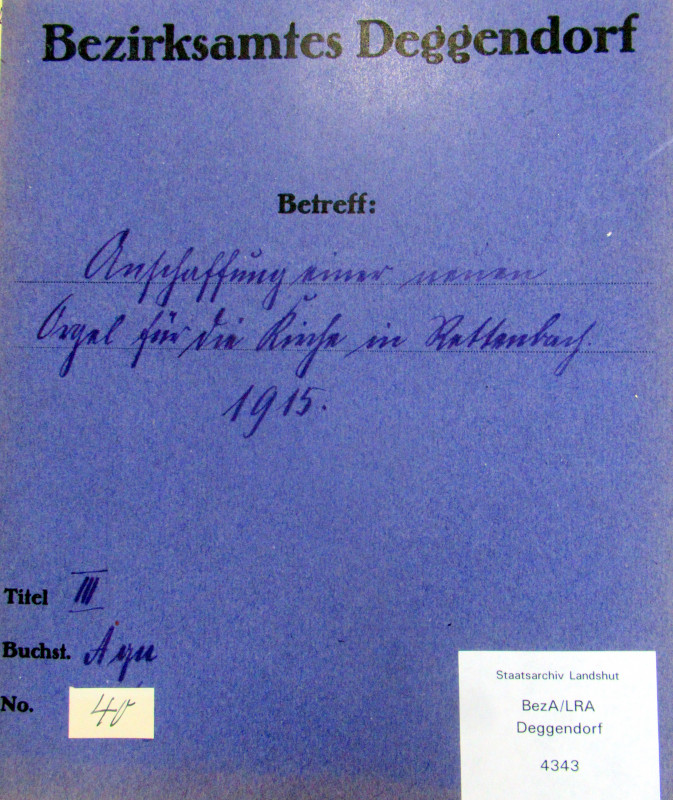 Bezirksamtes Deggendorf
Betreff:
Anschaffung einer neuen
Orgel für die Kirche in Rettenbach.
1915.
Titel III
Buchst.
No. 40
Staatsarchiv Landshut
BezA/LRA
Deggendorf
4343